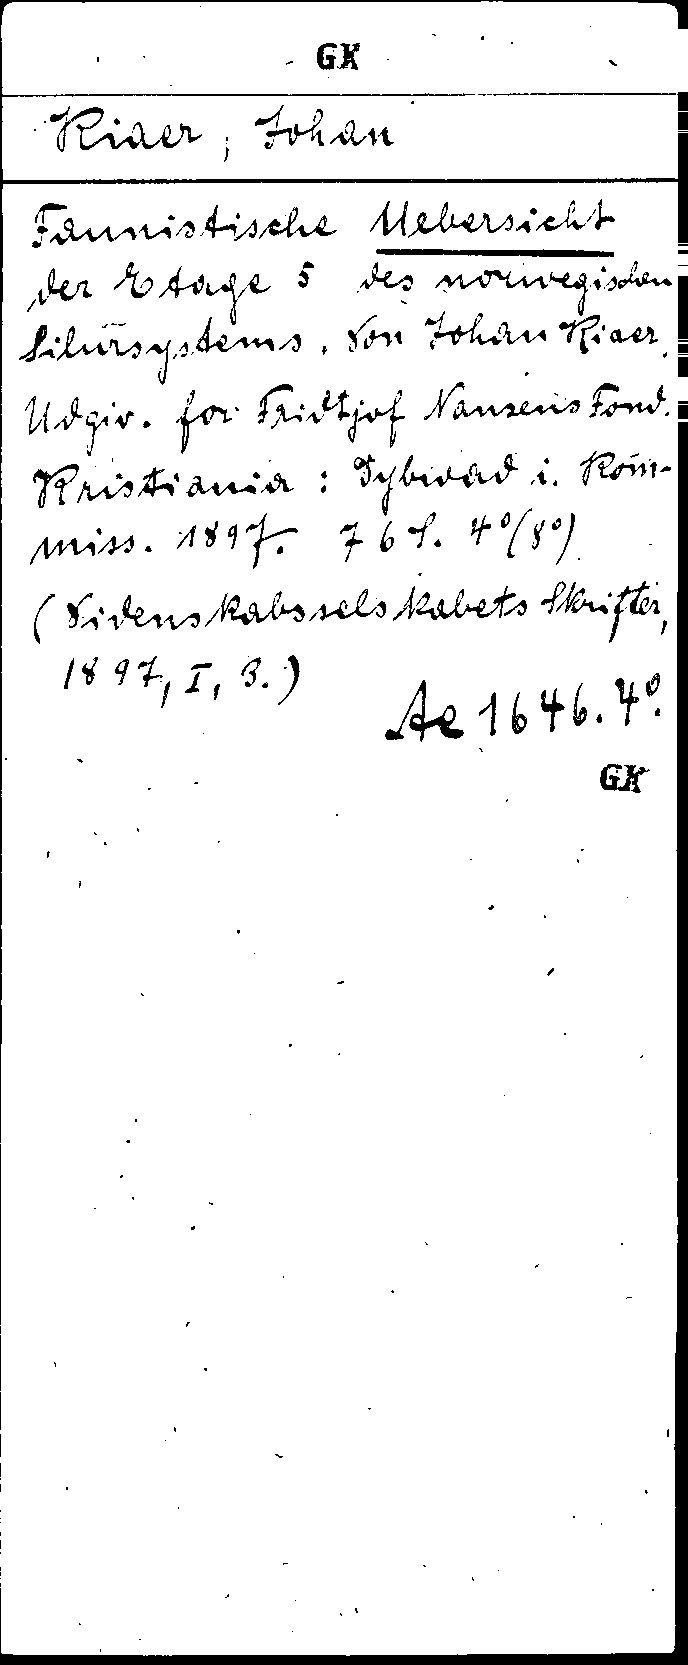 GK
Kiaer, Johan
Faunistische Uebersicht
der Etage 5 des norwegischen
Silursystems. Von Johan Kiaer.
Udgiv. for Fridtjof Nansens Fond.
Kristiania: Dybwad i. Kom-
miss. 1897. 76 S. 4º(8º)
(Videnskabsselskabets Skrifter,
1897, I, 3.)
Ae 1646. 4º.
GK